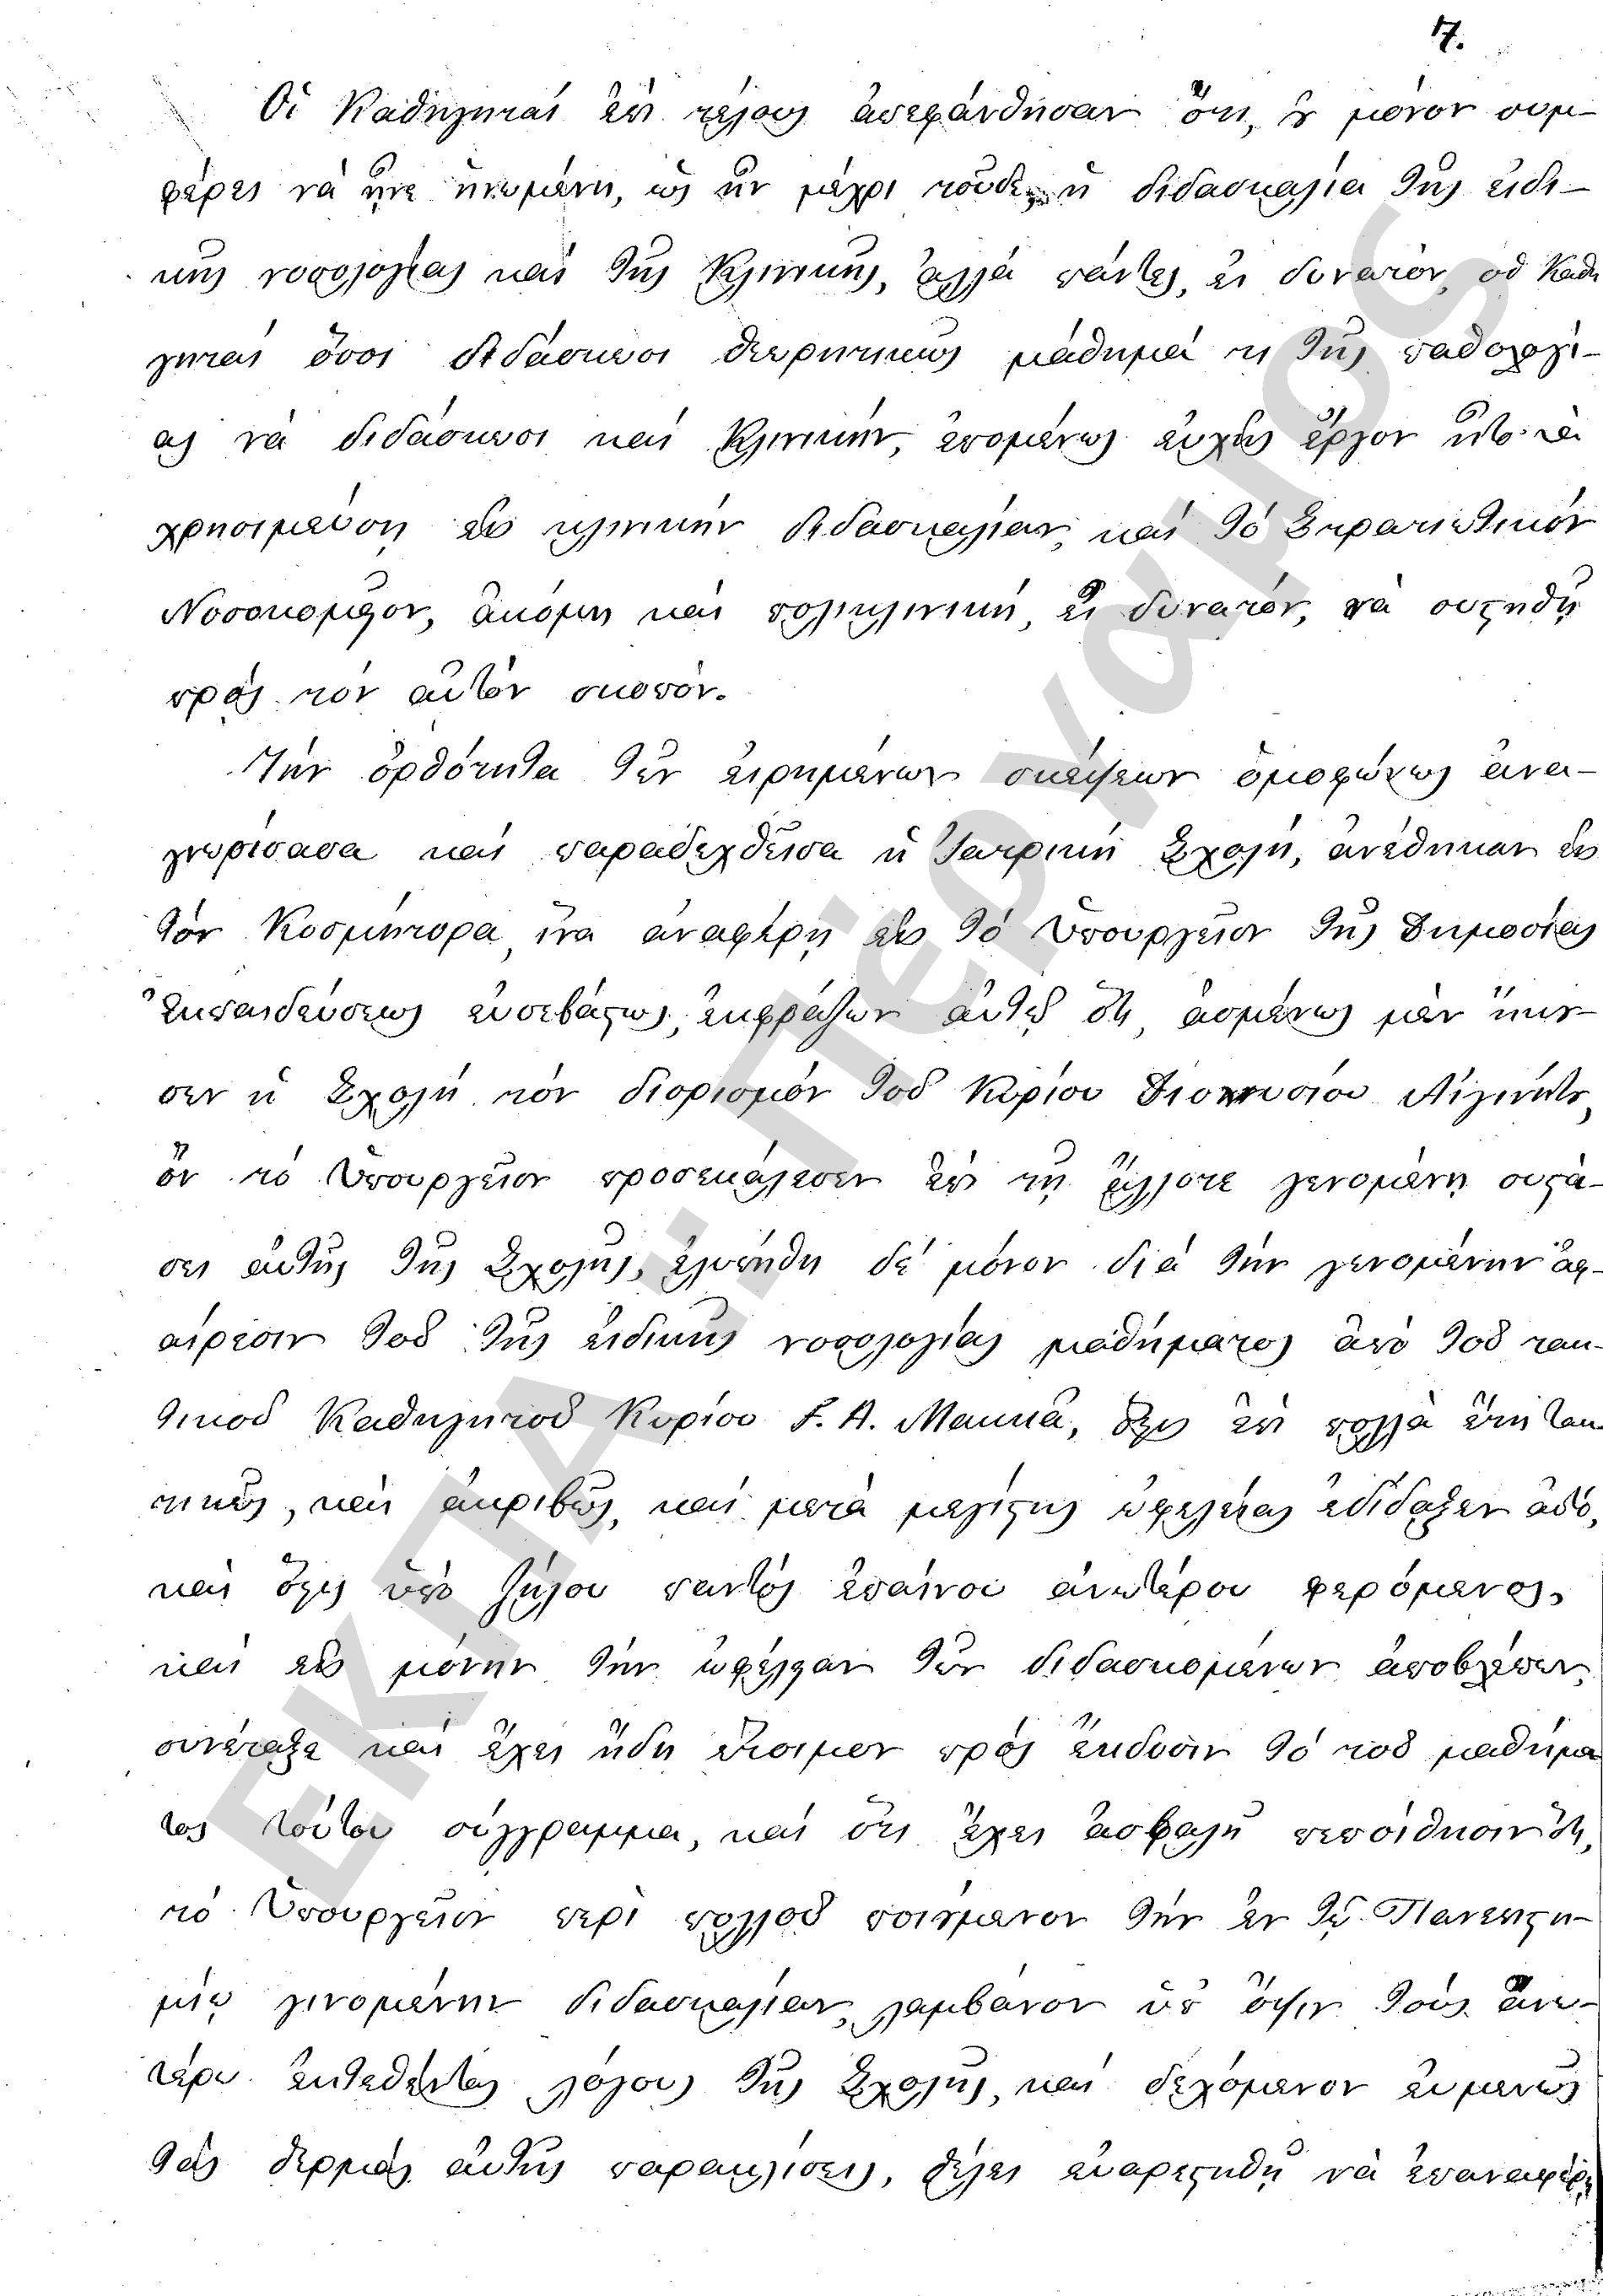 17.
Οἱ Καθηγηταὶ ἐν τέλους ἀπεφάνθησαν ὅτι, οὐ μόνον συμ-
φέρει νὰ ᾖνε ἡνωμένη, ὡς ἦν μέχρι τοῦδε, ἡ διδασκαλία τῆς εἰδι-
κῆς νοσολογίας καὶ τῆς Κλινικῆς, ἀλλὰ πάντες, εἰ δυνατὸν, οἱ Καθη
γηταὶ ὅσοι διδάσκουσι θεωρητικῶς μάθημά τι τῆς παθολογί-
ας νὰ διδάσκωσι καὶ Κλινικὴν, ἑπομένως εὐχῆς ἔργον ἦτο νὰ
χρησιμεύσῃ εἰς κλινικὴν διδασκαλίαν, καὶ τὸ Στρατιωτικὸν
Νοσοκομεῖον, ἀκόμη καὶ πολυκλινικὴ, εἰ δυνατὸν, νὰ συστηθῇ
πρὸς τὸν αὐτὸν σκοπόν.
Τὴν ὀρθότητα τῶν εἰρημένων σκέψεων ὁμοφώνως ἀνα-
γνωρίσασα καὶ παραδεχθεῖσα ἡ Ἰατρικὴ Σχολὴ, ἀνέθηκαν εἰς
τὸν Κοσμήτορα, ἵνα ἀναφέρῃ εἰς τὸ Ὑπουργεῖον τῆς Δημοσίας
Ἐκπαιδεύσεως εὐσεβάστως, ἐκφράζων αὐτῷ ὅτι, ἀσμένως μὲν ἤκου-
σεν ἡ Σχολὴ τὸν διορισμὸν τοῦ Κυρίου Διονυσίου Αἰγινήτου,
ὃν τὸ Ὑπουργεῖον προσεκάλεσεν ἐν τῇ ἄλλοτε γενομένῃ συστά-
σει αὐτῆς τῆς Σχολῆς, ἐλυπήθη δὲ μόνον διὰ τὴν γενομένην ἀφ-
αίρεσιν τοῦ τῆς εἰδικῆς νοσολογίας μαθήματος ἀπὸ τοῦ τακ-
τικοῦ Καθηγητοῦ Κυρίου Γ. Α. Μακκᾶ, ὅστις ἐπὶ πολλὰ ἔτη τακ-
τικῶς, καὶ ἀκριβῶς, καὶ μετὰ μεγίστης ὠφελείας ἐδίδαξεν αὐτὸ,
καὶ ὅστις ὑπὸ ζήλου παντὸς ἐπαίνου ἀνωτέρου φερόμενος,
καὶ εἰς μόνην τὴν ὠφέλειαν τῶν διδασκομένων ἀποβλέπων,
συνέταξε καὶ ἔχει ἤδη ἕτοιμον πρὸς ἔκδοσιν τὸ τοῦ μαθήμα
τος τούτου σύγγραμμα, καὶ ὅτι ἔχει ἀσφαλῆ πεποίθησιν ὅτι,
τὸ Ὑπουργεῖον περὶ πολλοῦ ποιούμενον τὴν ἐν τῷ Πανεπιστη-
μίῳ γινομένην διδασκαλίαν, λαμβάνον ὑπ' ὄψιν τοὺς ἀνω-
τέρω ἐκτεθέντας λόγους τῆς Σχολῆς, καὶ δεχόμενον εὐμενῶς
τὰς θερμὰς αὐτῆς παρακλήσεις, θέλει εὐαρεστηθῇ νὰ ἐπαναφέρῃ